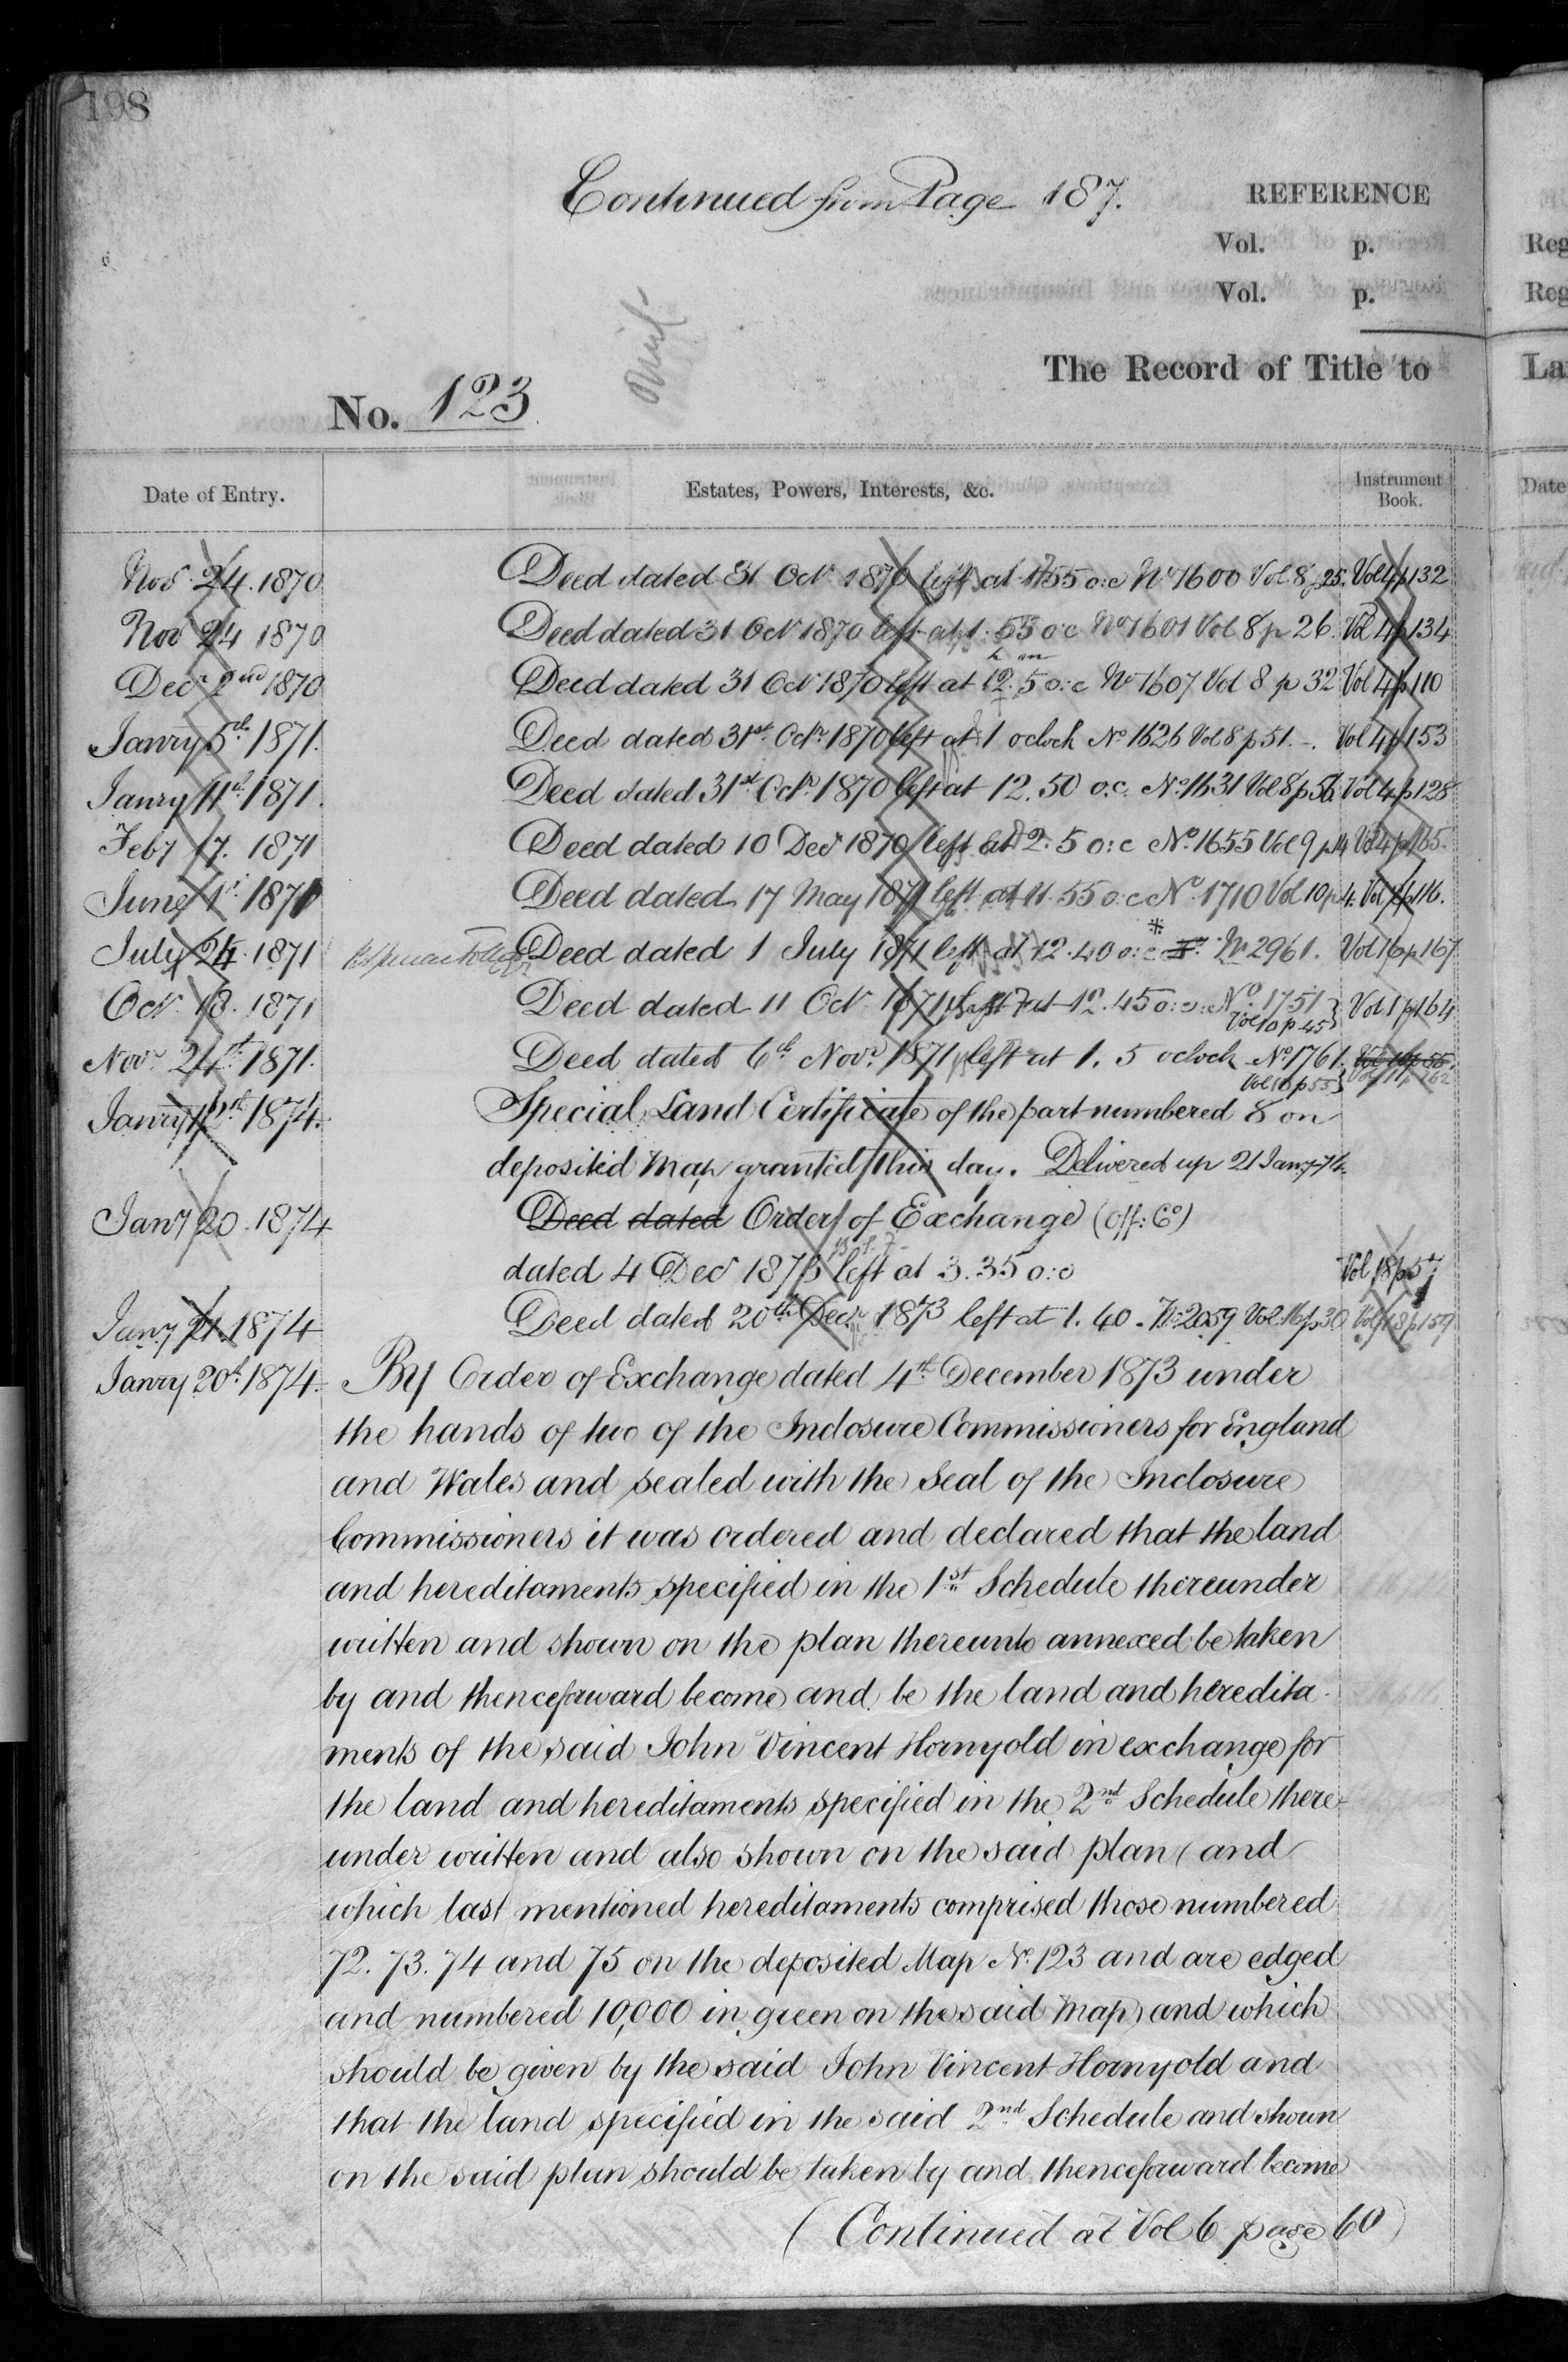 198
Continued from Page 187.
REFERENCE
Vol. p.
Vol. p.
The Record of Title to
No. 123
Date of Entry.
Estates, Powers, Interests, &c.
Instrument Book.
Novr 24. 1870 Deed dated 31 Octr 1870 left at 1.55 o:c No 1600 Vol 8 p 25. Vol 4 p 132
Nov 24 1870 Deed dated 31 Octr 1870 left at 1. 55 o:c No 1601 Vol 8 p 26. Vol 4 p 134
Decr 2nd 1870 Deed dated 31 Octr 1870 left at 12. 5 o:c No 1607 Vol 8 p 32 Vol 4 p 110
Janry 5th 1871. Deed dated 31st Octr 1870 left at 1 oclock No 1626 Vol 8 p 51. Vol 4 p 153
Janry 11th 1871. Deed dated 31st Octr 1870 left at 12. 50 o.c. No 1631 Vol 8 p 56 Vol 4 p 128
Feby 17. 1871 Deed dated 10 Decr 1870 left at 2. 5 o:c No 1655 Vol 9 p 14 Vol 4 p 165.
June 1st 1871 Deed dated 17 May 1871 left at 11. 55 o:c No 1710 Vol 10 p 4. Vol p 116.
July 24. 1871 Deed dated 1 July 1871 left at 12. 40 o:c * No 2961. Vol 16 p 167
Octr 18. 1871 Deed dated 11 Octr 1871 left at 12. 45 o:c: No 1751 Vol 1 p 164
Vol 10 p 45
Novr 24th 1871. Deed dated 6th Novr 1871 left at 1. 5 oclock No 1761. Vol 10 p 55.
Vol 10 p 55 Vol 11 p 162
Janry 12th 1874. Special Land Certificate of the part numbered 8 on
deposited Map granted this day. Delivered up 21 Jany 74.
Jany 20. 1874 Deed dated Order of Exchange (off: Co)
dated 4 Decr 1873 left at 3. 35 o:c Vol 18 p 57
Jany 21. 1874 Deed dated 20th Decr 1873 left at 1. 40. No 2059 Vol. 16 p 30 Vol 18 p 159
Janry 20th 1874. By Order of Exchange dated 4th December 1873 under
the hands of two of the Inclosure Commissioners for England
and Wales and sealed with the Seal of the Inclosure
Commissioners it was ordered and declared that the land
and hereditaments specified in the 1st Schedule thereunder
written and shown on the plan thereunto annexed be taken
by and thenceforward become and be the land and heredita-
ments of the said John Vincent Hornyold in exchange for
the land and hereditaments specified in the 2nd Schedule there-
under written and also shown on the said plan (and
which last mentioned hereditaments comprised those numbered
72. 73. 74 and 75 on the deposited Map No. 123 and are edged
and numbered 10,000 in green on the said Map) and which
should be given by the said John Vincent Hornyold and
that the land specified in the said 2nd Schedule and shown
on the said plan should be taken by and thenceforward become
(Continued at Vol 6 page 60)
Reg
Reg
La
Date